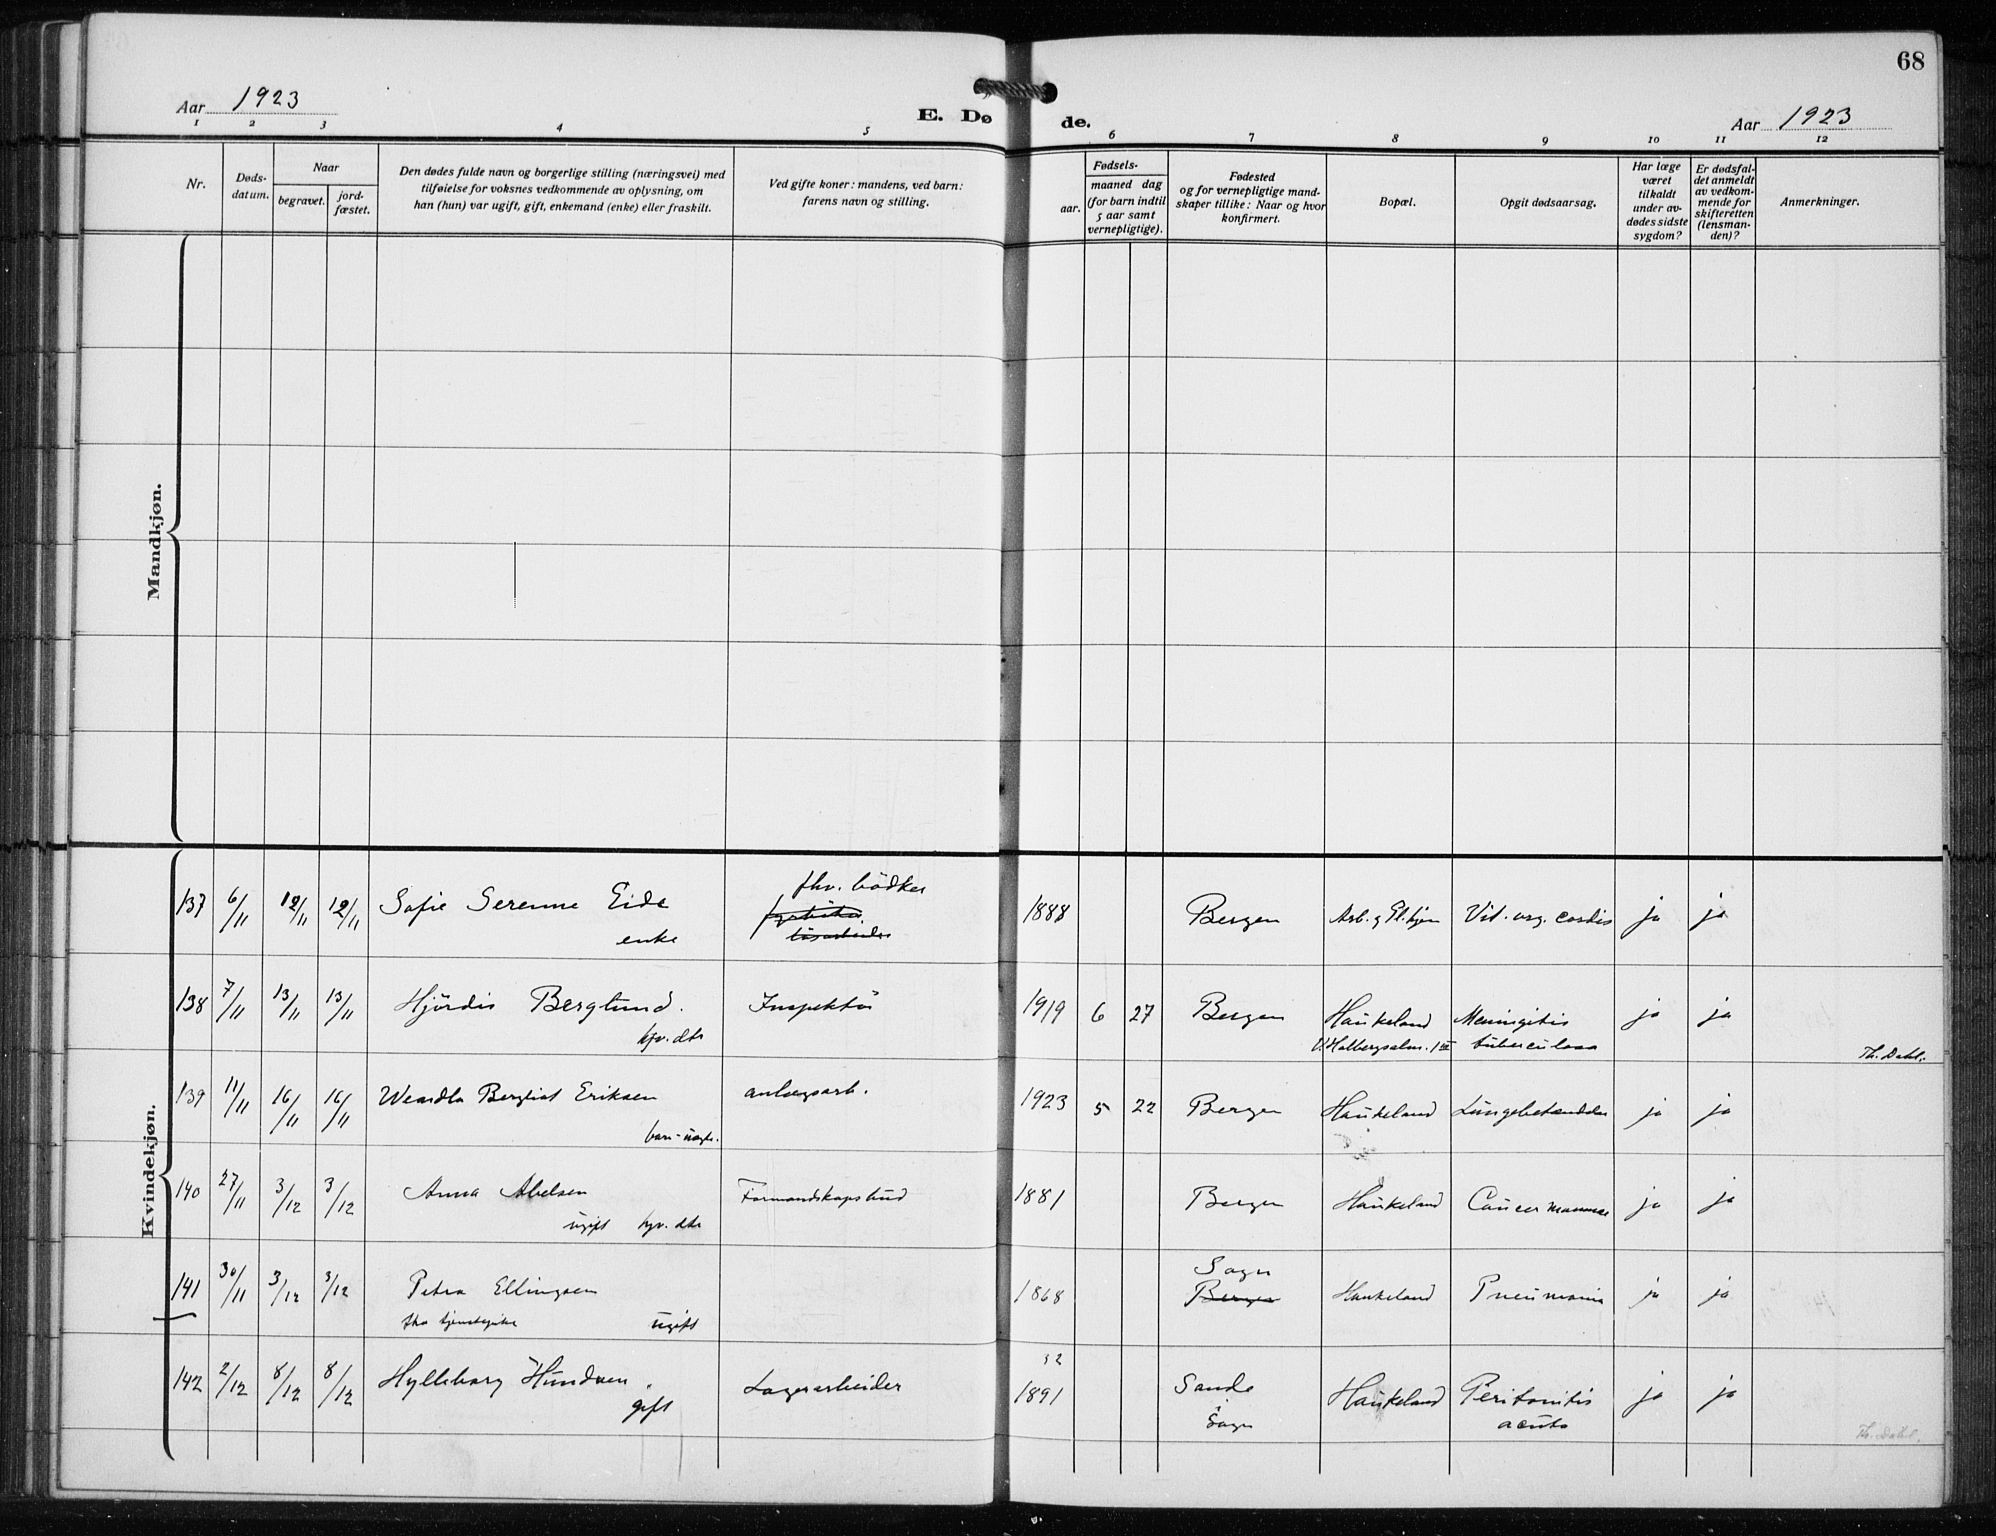 68
Aar 1923
E. Dø de.
Aar 1923
1 2 3 4 5 6 7 8 9 10 11 12
Nr.
Døds-
datum.
Naar
begravet.
jord-
fæstet.
Den dødes fulde navn og borgerlige stilling (næringsvei) med
tilføielse for voksnes vedkommende av oplysning, om
han (hun) var ugift, gift, enkemand (enke) eller fraskilt.
Ved gifte koner: mandens, ved barn:
farens navn og stilling.
Fødsels-
aar.
maaned dag
(for barn indtil
5 aar samt
vernepligtige).
Fødested
og for vernepligtige mand-
skaper tillike: Naar og hvor
konfirmert.
Bopæl.
Opgit dødsaarsag.
Har læge
været
tilkaldt
under av-
dødes sidste
sygdom?
Er dødsfal-
det anmeldt
av vedkom-
mende for
skifteretten
(lensman-
den)?
Anmerkninger.
Mandkjøn.
Kvindekjøn.
fhv. bödker
137 6/11 12/11 12/11 Sofie Serenne Eide 1888 Bergen Arb. g Pl.hjem Vit. org. cordis ja ja
enke løsarbeider
138 7/11 13/11 13/11 Hjördis Berglund. Inspektör 1919 6 27 Bergen Haukeland Meningitis ja ja
hjv. dtr V. Holbergsalm. 1 III tuberculosa Th. Dahl.
139 11/11 16/11 16/11 Bergliot Eriksen anlægsarb. 1923 5 22 Bergen Haukeland Lungebetændelse ja ja
barn
140 27/11 3/12 3/12 Anna Abelsen Formandskapsbud 1881 Bergen Haukeland Cancer mammae ja ja
ugift hjv. dtr
Sogn
141 30/11 3/12 3/12 Petra Ellingsen 1868 Bergen Haukeland Pneumonia ja ja
fhv tjenestepike ugift
32
142 2/12 8/12 8/12 Hylleborg Hundven. Lagerarbeider 1891 Sande Haukeland Peritonitis ja ja
gift Sogn acuta
Th. Dahl.